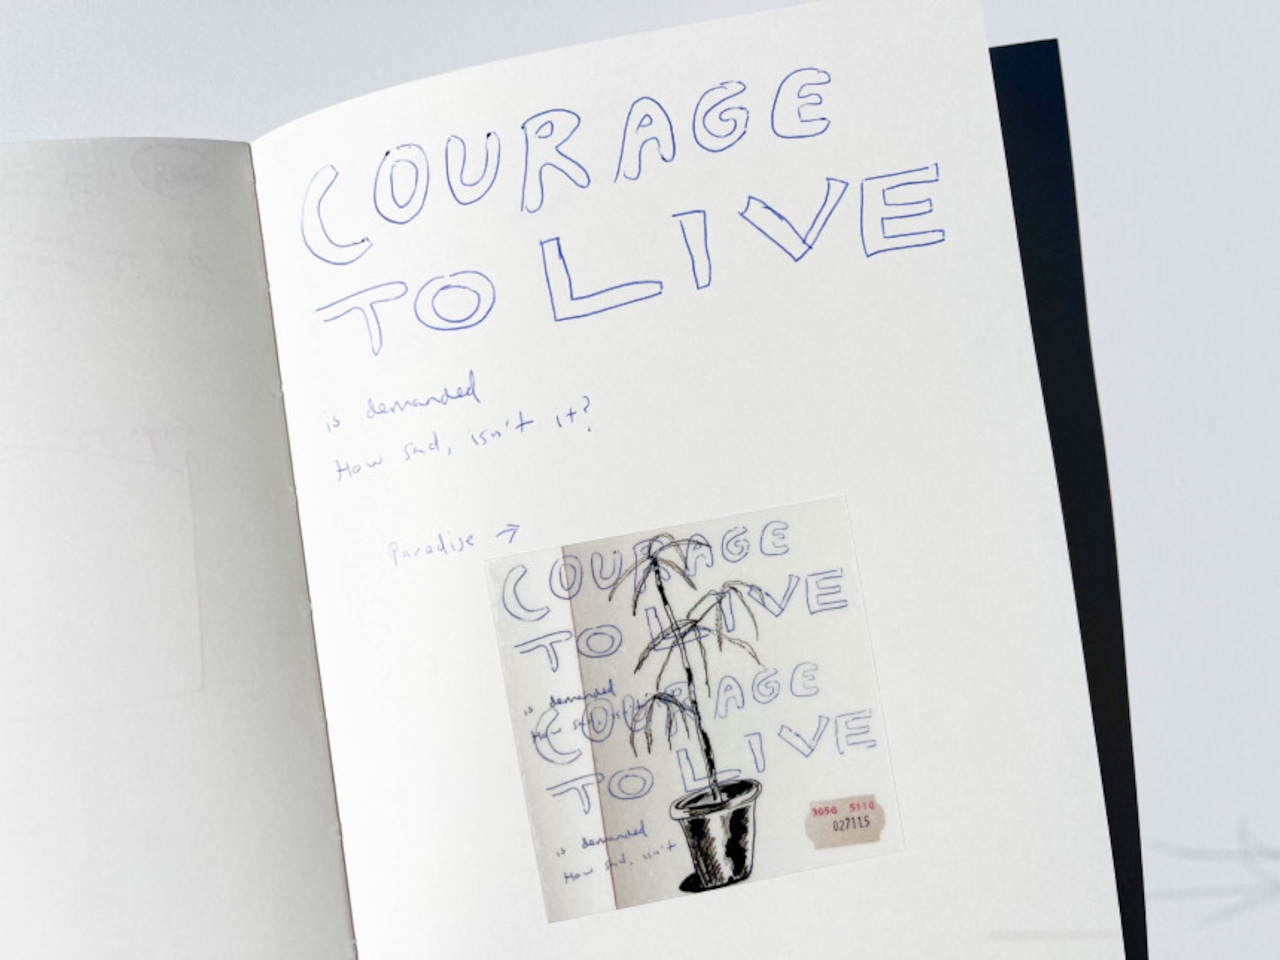 COURAGE
TO LIVE
is demanded
How sad, isn't it?
Paradise →
COURAGE
TO LIVE
is demanded
How sad, isn't
COURAGE
TO LIVE
is demanded
How sad, isn't
3050 5110
027115